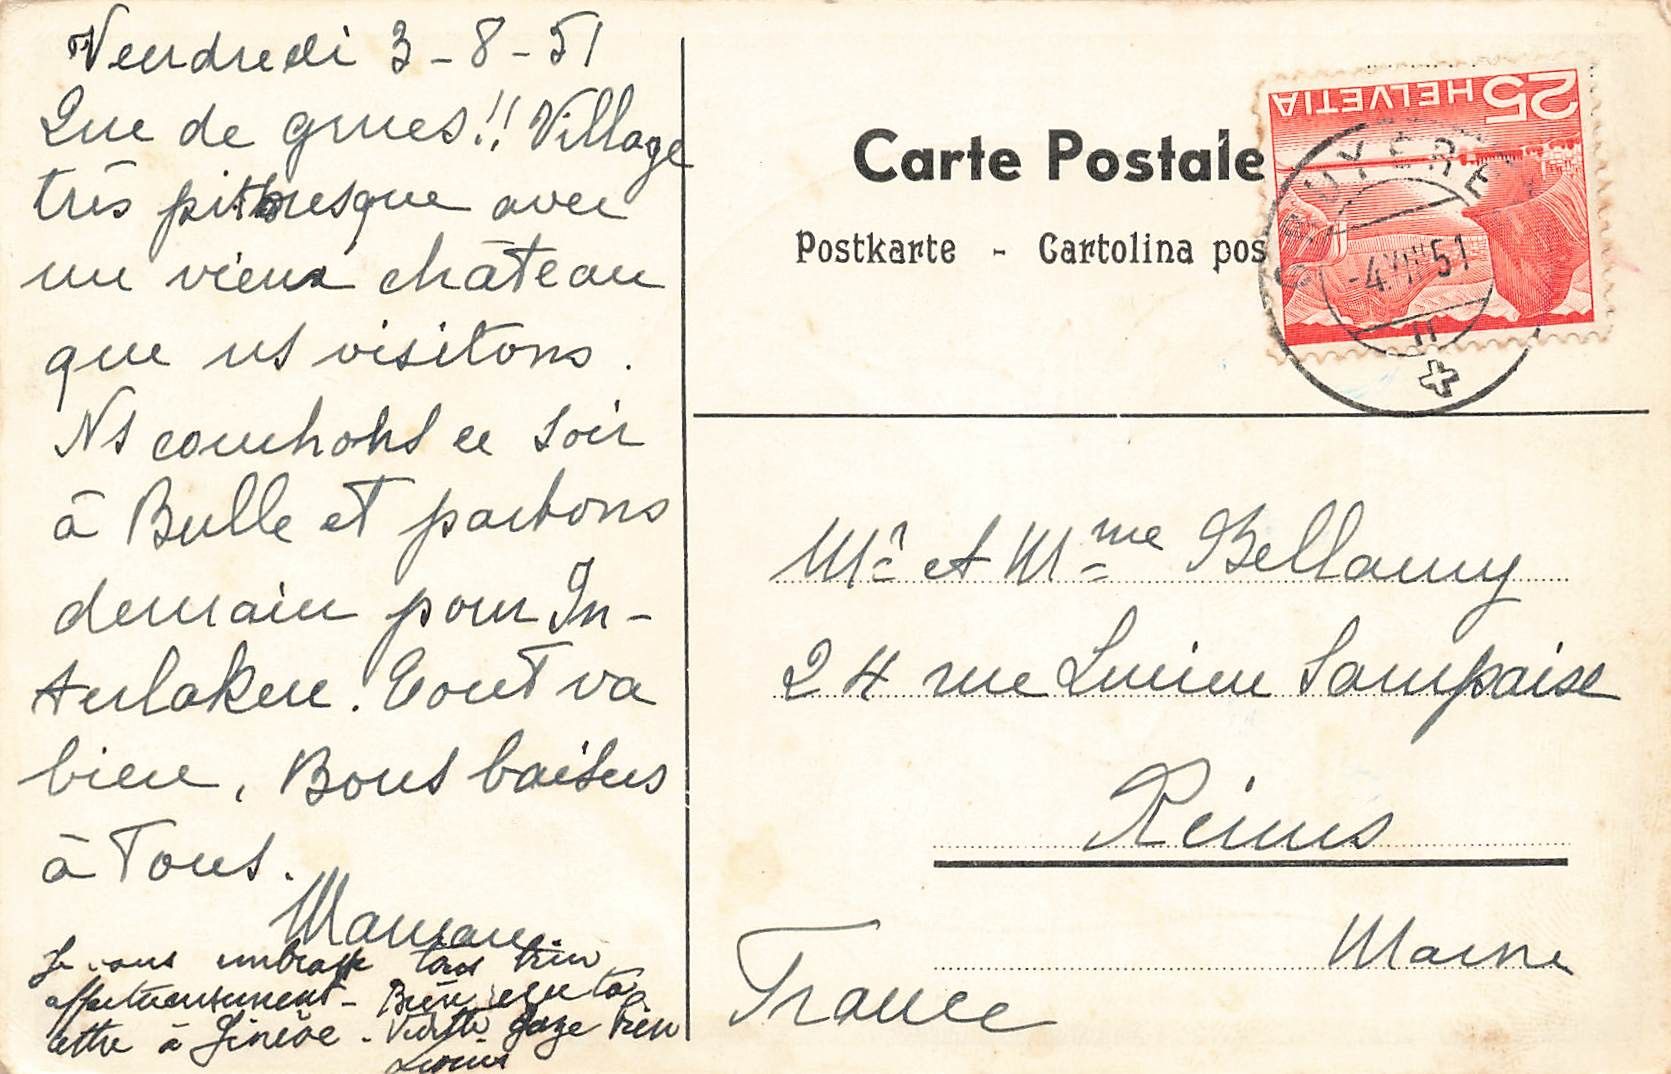 Vendredi 3-8-51
Que de grues!! Village
très pittoresque avec
un vieux château
que ns visitons.
Ns couchons ce soir
à Bulle et partons
demain pour In-
terlaken. Tout va
bien, Bons baisers
à Tous.
Maman
Je vous embrasse tous bien
affectueusement - Bien reçu ta
lettre à Genève -
bien
Carte Postale
Postkarte - Cartolina pos
HELVETIA 25
GRUYERES
-4.VIII 51
Mr et Mme Bellamy
24 rue Lucien Sampaise
Reims
Marne
France